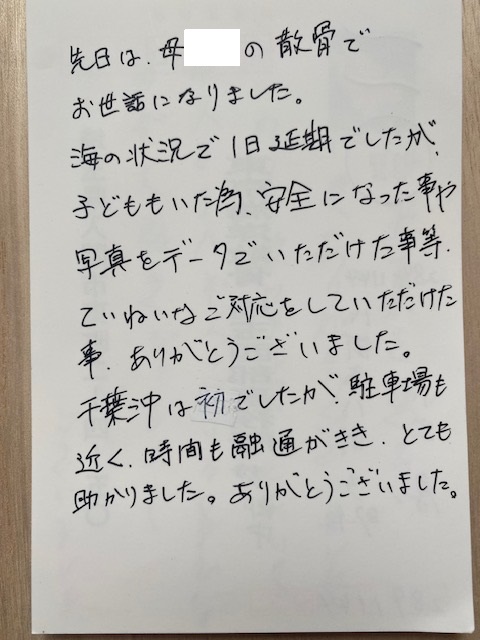 先日は、母 の散骨で
お世話になりました。
海の状況で1日延期でしたが、
子どももいた為、安全になった事や
写真をデータでいただけた事等、
ていねいなご対応をしていただけた
事、ありがとうございました。
千葉沖は初でしたが、駐車場も
近く、時間も融通がきき、とても
助かりました。ありがとうございました。